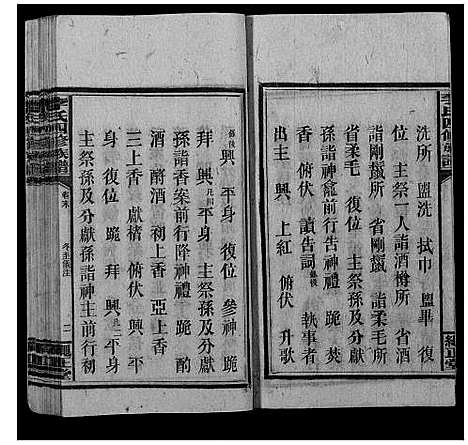 洗所 盥洗 拭巾 盥畢 復
位 主祭一人詣酒樽所 省酒
詣剛鬣所 省剛鬣 詣柔毛所
省柔毛 復位 主祭
孫詣神龕前行告神禮 跪 焚
香 俯伏 讀告詞 錄後 執事者
出主 興 上紅 俯伏 升歌
錄後 興 平身 復位 參神 跪
拜 興 凡四 平身 主祭孫及分獻
孫詣香案前行降神禮 跪 酌
酒 酹酒 初上香 亞上香
三上香 獻楮 俯伏 興 平
身 復位 跪 拜 興 凡二 平身
主祭孫及分獻孫詣神主前行初
李氏四修族譜
卷末
冬至儀注
二